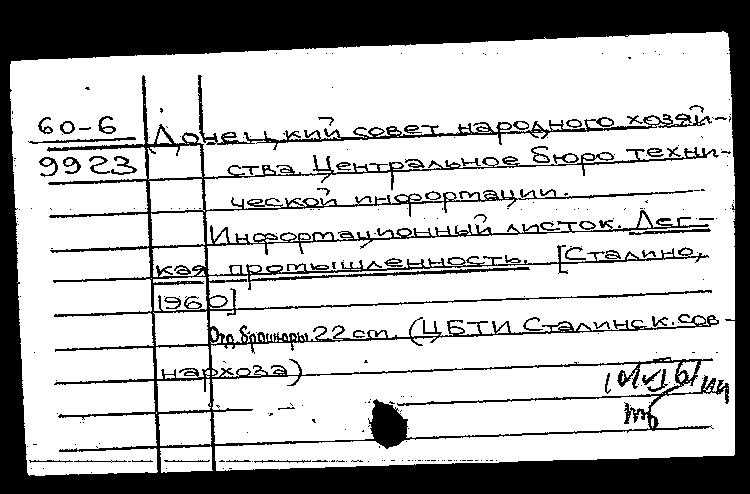 60-6 Донецкий совет народного хозяй-
9923 ства. Центральное бюро техни-
ческой информации.
Информационный листок. Лег-
кая промышленность. [Сталино,
1960]
Отд. брошюры. 22 cm. (ЦБТИ Сталинск. сов-
нархоза)